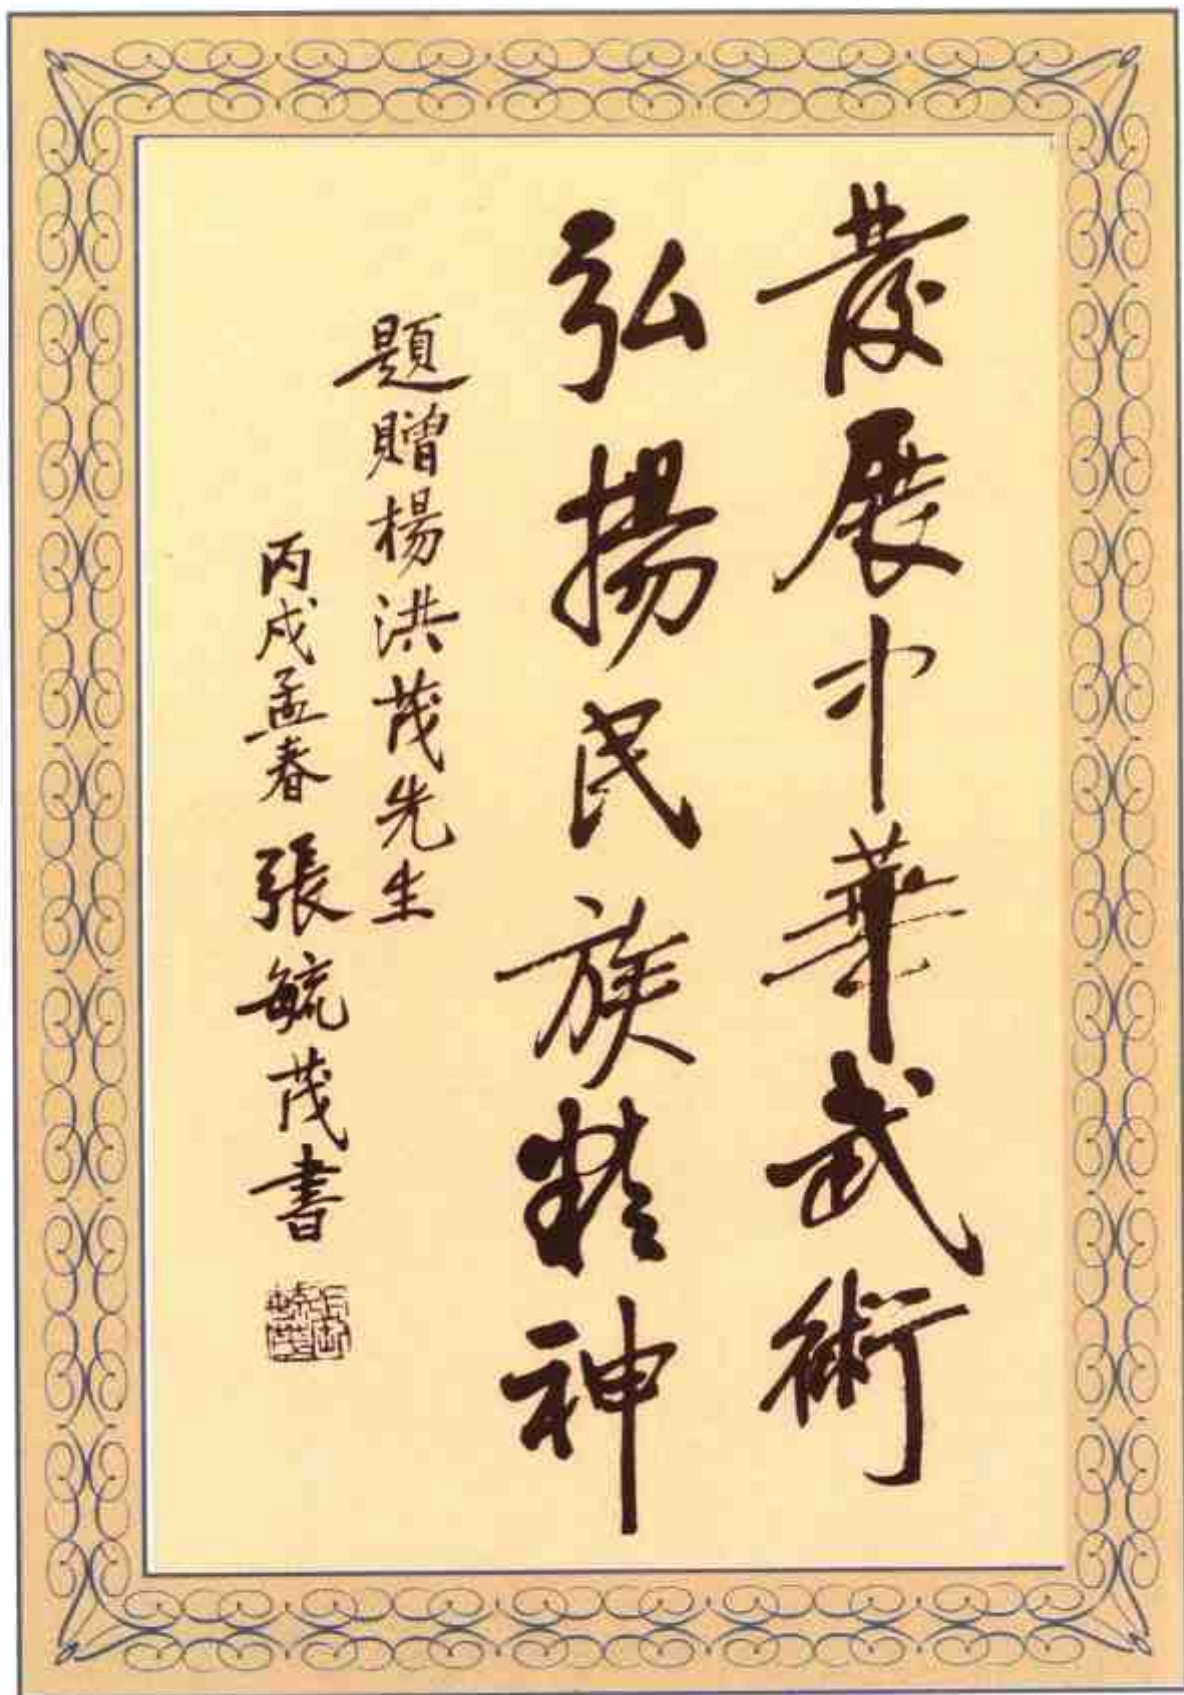 發展中華武術
弘揚民族精神
題贈楊洪茂先生
丙戌孟春 張毓茂書